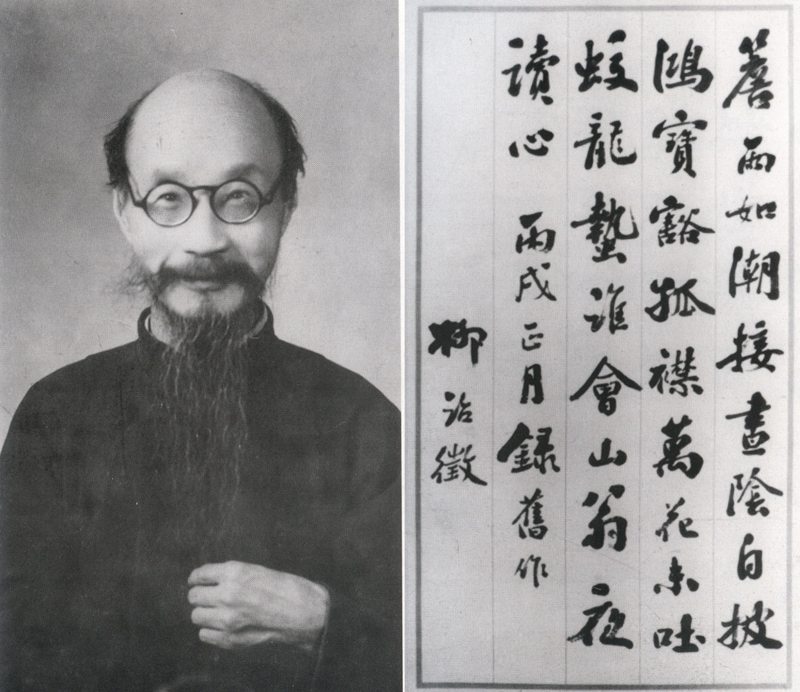 簷雨如潮接晝陰自披
鴻寶豁孤襟萬花未吐
蛟龍蟄誰會山翁夜
讀心 丙戌正月錄舊作
柳詒徵